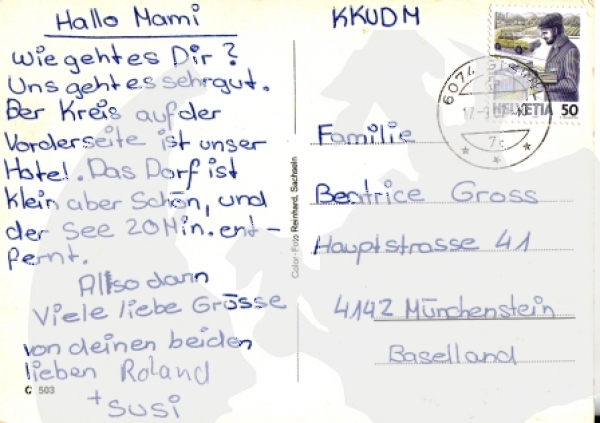 Hallo Mami
Wie geht es Dir?
Uns geht es sehr gut.
Der Kreis auf der
Vorderseite ist unser
Hotel. Das Dorf ist
klein aber Schön, und
der See 20 Min. ent-
fernt.
Also dann
Viele liebe Grüsse
von deinen beiden
lieben Roland
+ Susi
C 503
Color-Foto Reinhard, Sachseln
KKUDM
6074
HELVETIA 50
Familie
Beatrice Gross
Hauptstrasse 41
4142 Münchenstein
Baselland